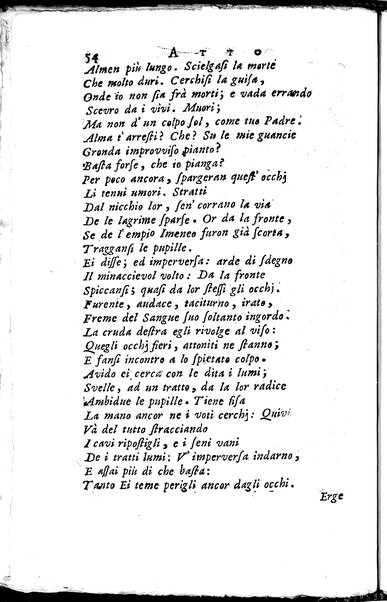 54 ATTO
Almen più lungo. Scielgasi la morte
Che molto duri. Cerchisi la guisa,
Onde io non sia frà morti; e vada errando
Scevro da i vivi. Muori;
Ma non d'un colpo sol, come tuo Padre.
Alma t'arresti? Che? Su le mie guancie
Gronda improvviso pianto?
Basta forse, che io pianga?
Per poco ancora, spargeran quest' occhj
Li tenui umori. Stratti
Dal nicchio lor, sen' corrano la via
De le lagrime sparse. Or da la fronte,
Se de l'empio Imeneo furon già scorta,
Traggansi le pupille.
Ei disse; ed imperversa: arde di sdegno
Il minaccievol volto: Da la fronte
Spiccansi; quasi da lor stessi gli occhj.
Furente, audace, taciturno, irato,
Freme del Sangue suo soltanto ingordo.
La cruda destra egli rivolge al viso:
Quegli occhj fieri, attoniti ne stanno;
E fansi incontro a lo spietato colpo.
Avido ei cerca con le dita i lumi;
Svelle, ad un tratto, da la lor radice
Ambidue le pupille. Tiene fisa
La mano ancor ne i voti cerchj: Quivi
Và del tutto stracciando
I cavi ripostigli, e i seni vani
De i tratti lumi: V' imperversa indarno,
E assai più di che basta:
Tanto Ei teme perigli ancor dagli occhi.
Erge